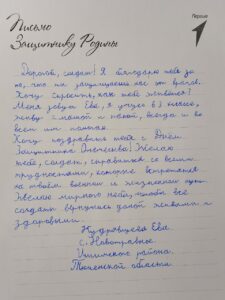 Первые
Письмо
Защитнику Родины
Дорогой, солдат! Я благодарю тебя за
то, что ты защищаешь нас от врагов.
Хочу спросить, как тебе живётся?
Меня зовут Ева, я учусь в 3 классе,
живу с мамой и папой, всегда и во
всём им помогаю.
Хочу поздравить тебя с Днём
Защитника Отечества! Желаю
тебе, солдат, справиться со всеми
трудностями, которые встретятся
на твоём военном и жизненном пути
Желаю мирного неба, чтобы все
солдаты вернулись домой живыми и
здоровыми.
Кудрявцева Ева
с.
Упоровского района.
Тюменской области.